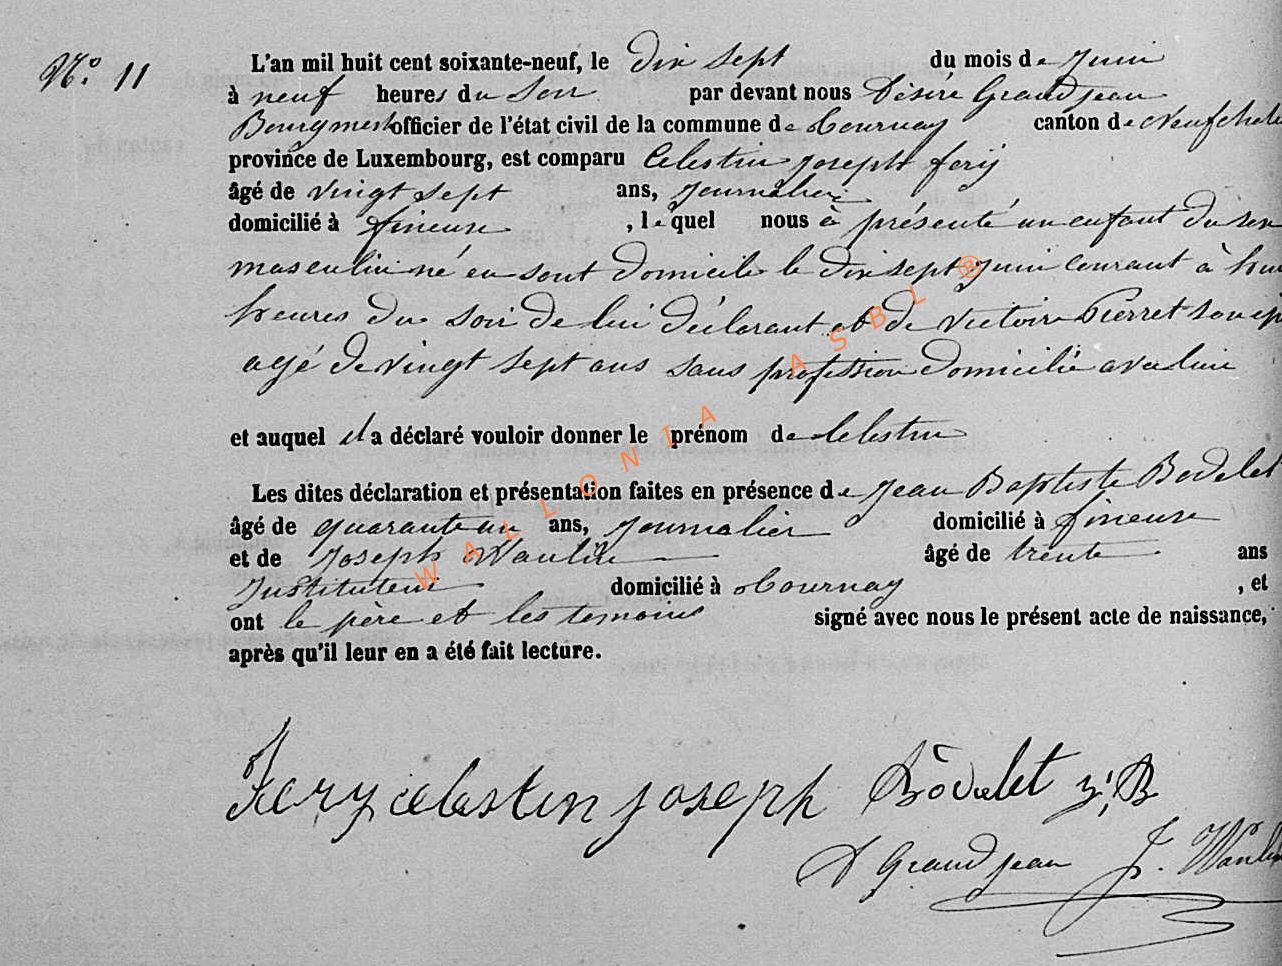 N.o 11
L'an mil huit cent soixante-neuf, le dix sept du mois de Juin
à neuf heures du Soir par devant nous Désiré Grandjean
Bourgmest officier de l'état civil de la commune de Tournay canton de Neufchate
province de Luxembourg, est comparu Celestin Joseph fery
âgé de vingt sept ans, Journalier
domicilié à fineuse, lequel nous à présenté un enfant du sex
masculin né en sont domicile le dix sept juin courant à hui
heures du soir de lui déclarant et de Victoire Pierret son ép
agé de vingt sept ans sans profession domicilié avec lui
et auquel il a déclaré vouloir donner le prénom de Celestin
Les dites déclaration et présentation faites en présence de Jean Baptiste Bodelet
âgé de quarante un ans, Journalier domicilié à fineuse
et de Joseph Waulin âgé de trente ans
Instituteur domicilié à Tournay, et
ont le père et les temoins signé avec nous le présent acte de naissance,
après qu'il leur en a été fait lecture.
WALLONIA ASBL ®
Fery celestin joseph Bodelet j, B
D Grandjean J. Waulin